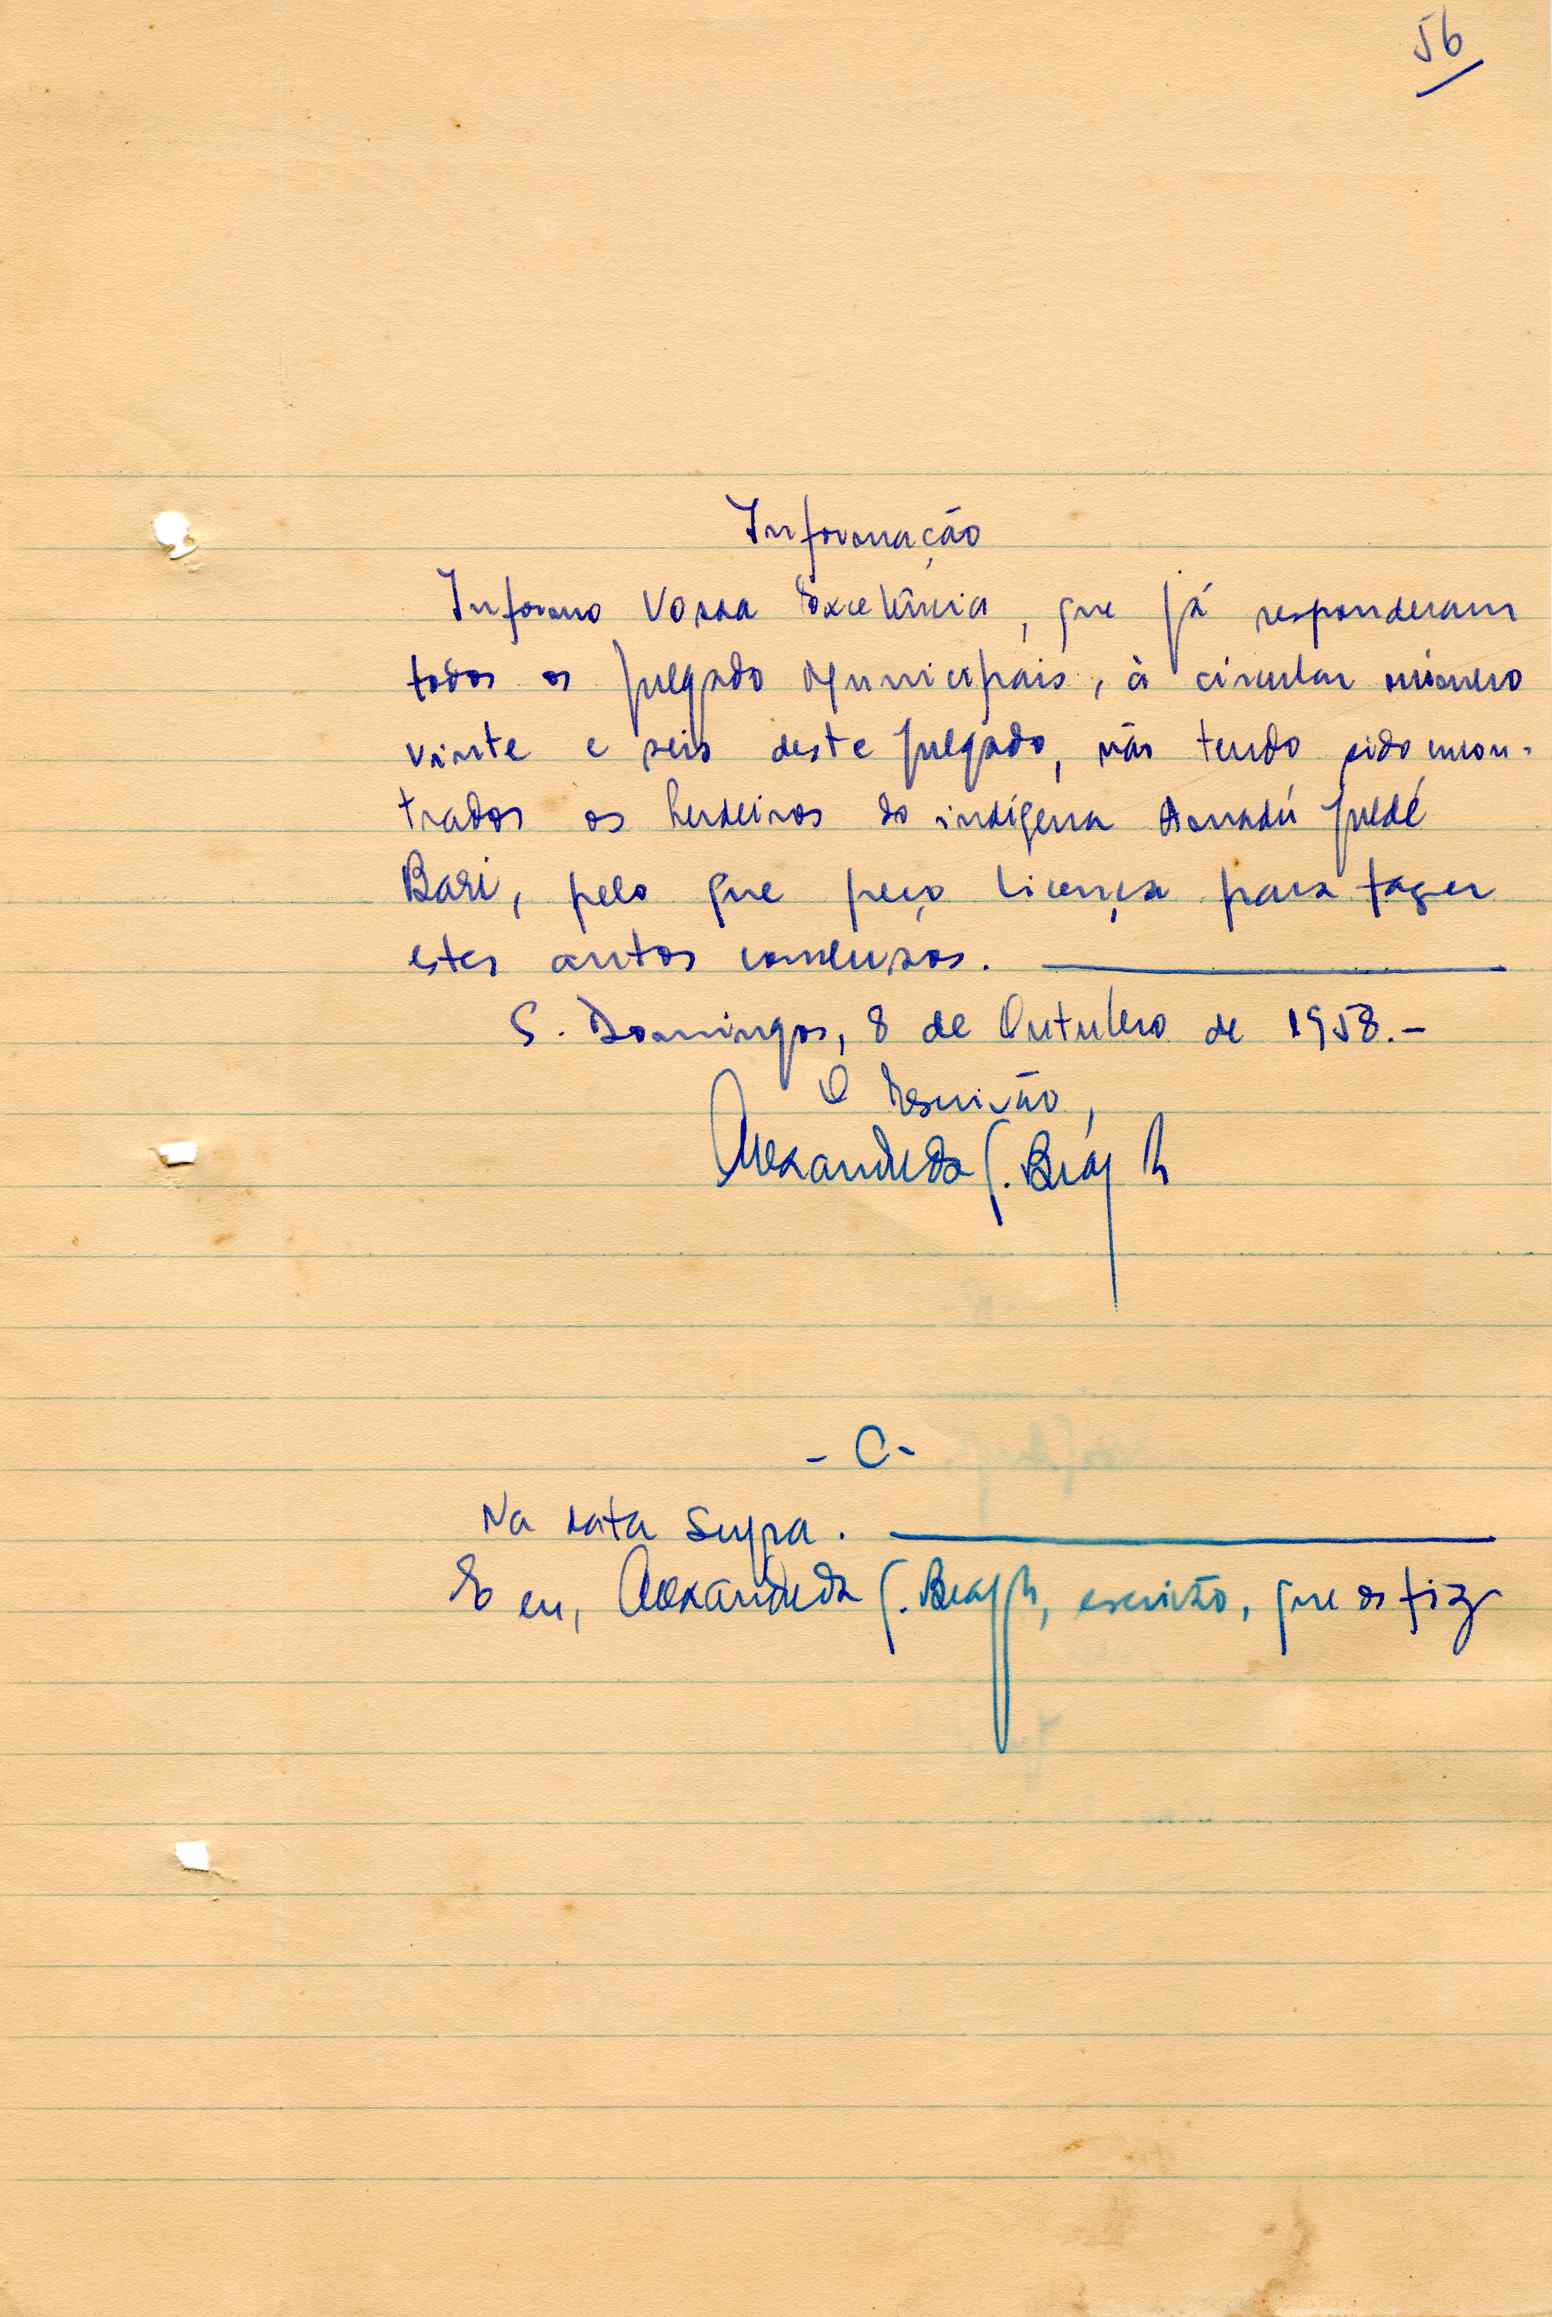 56
Informação
Informo Vossa Excelência, que já responderam
todos os Julgado Municipais, à circular número
vinte e seis deste Julgado, não tendo sido encon-
trados os herdeiros do indígena Amadú Juldé
Bari, pelo que peço licença para fazer
estes autos conclusos.
S. Domingos, 8 de Outubro de 1958.-
O Escrivão,
- C -
Na data supra.
E eu, escrivão, que os fiz